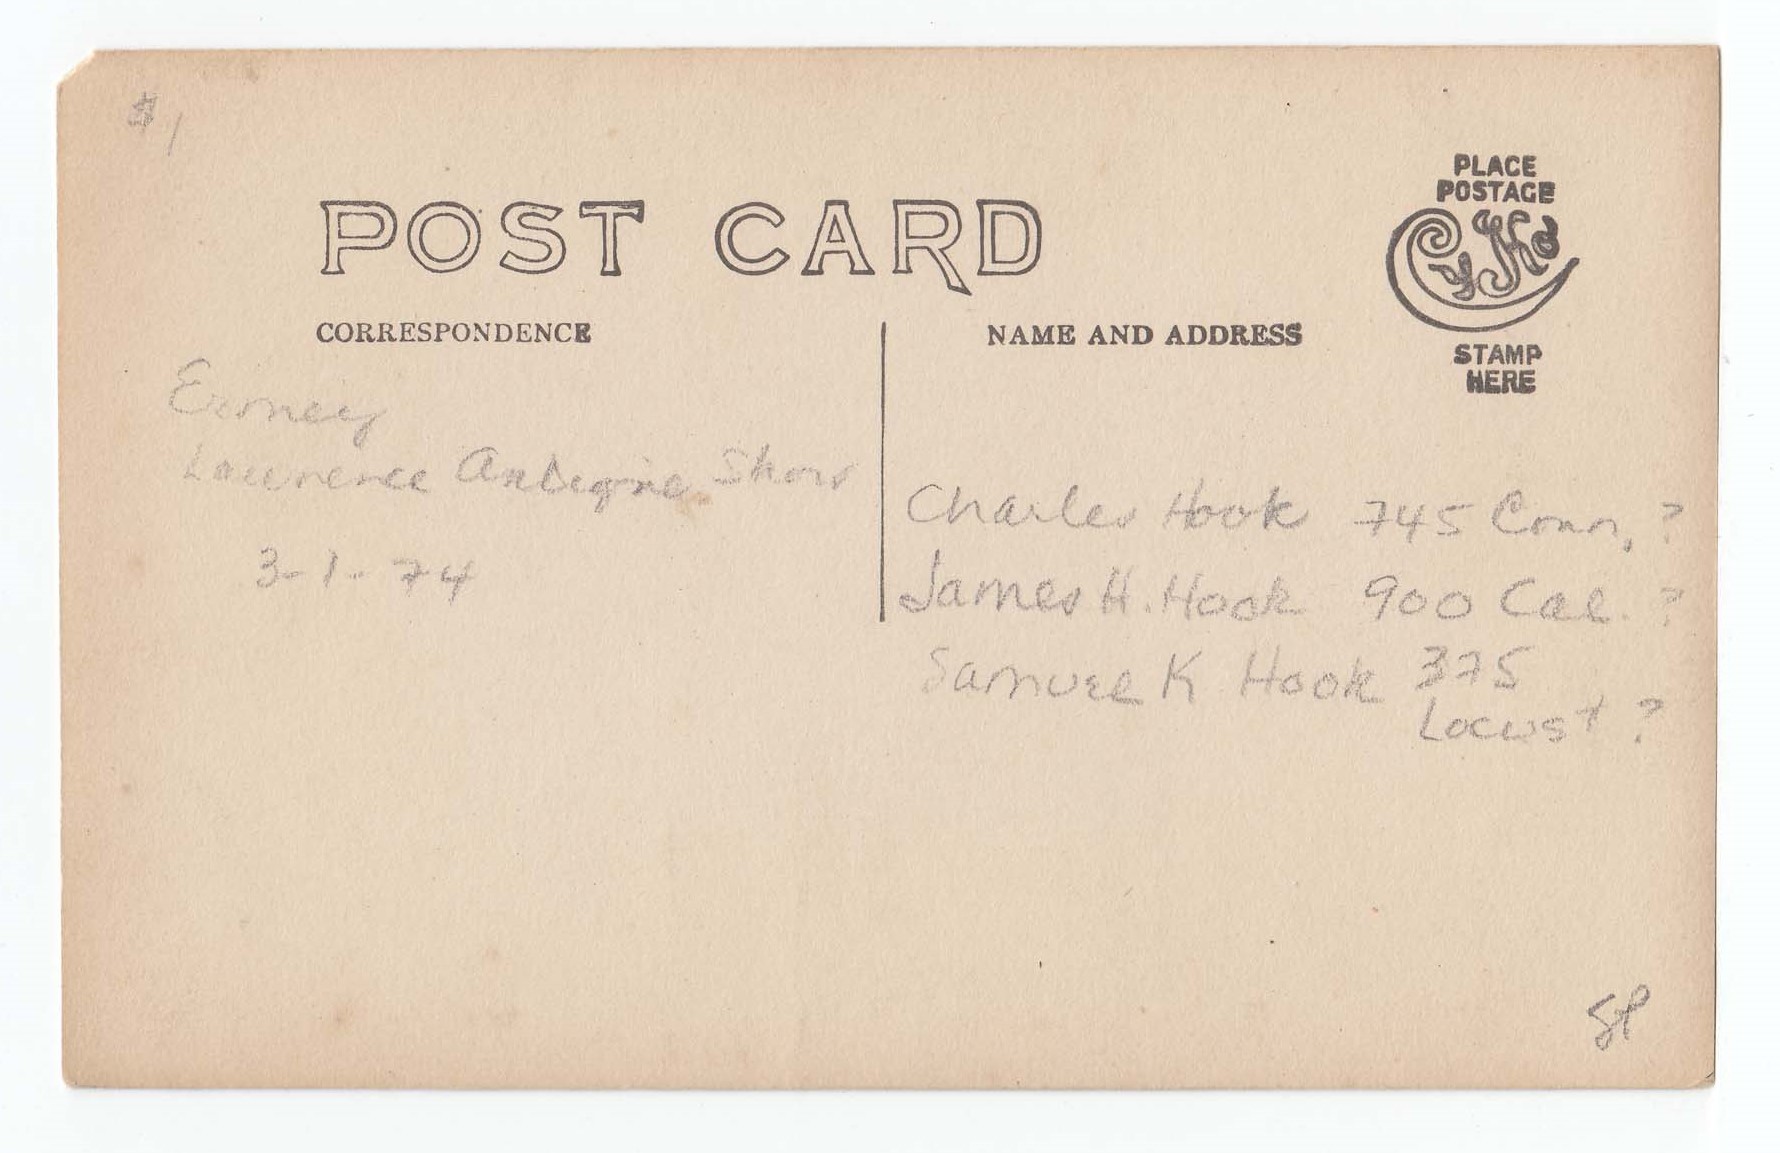 $1
PLACE
POSTAGE
POST CARD
CyKo
CORRESPONDENCE
NAME AND ADDRESS
STAMP
HERE
Lawrence Show
3-1-74
Charles Hook 745 Conn, ?
James H. Hook 900 Cal. ?
Samuel K Hook 375
Locust ?